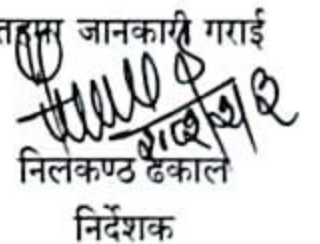 तहमा जानकारी गराई
निलकण्ठ ढकाल
निर्देशक